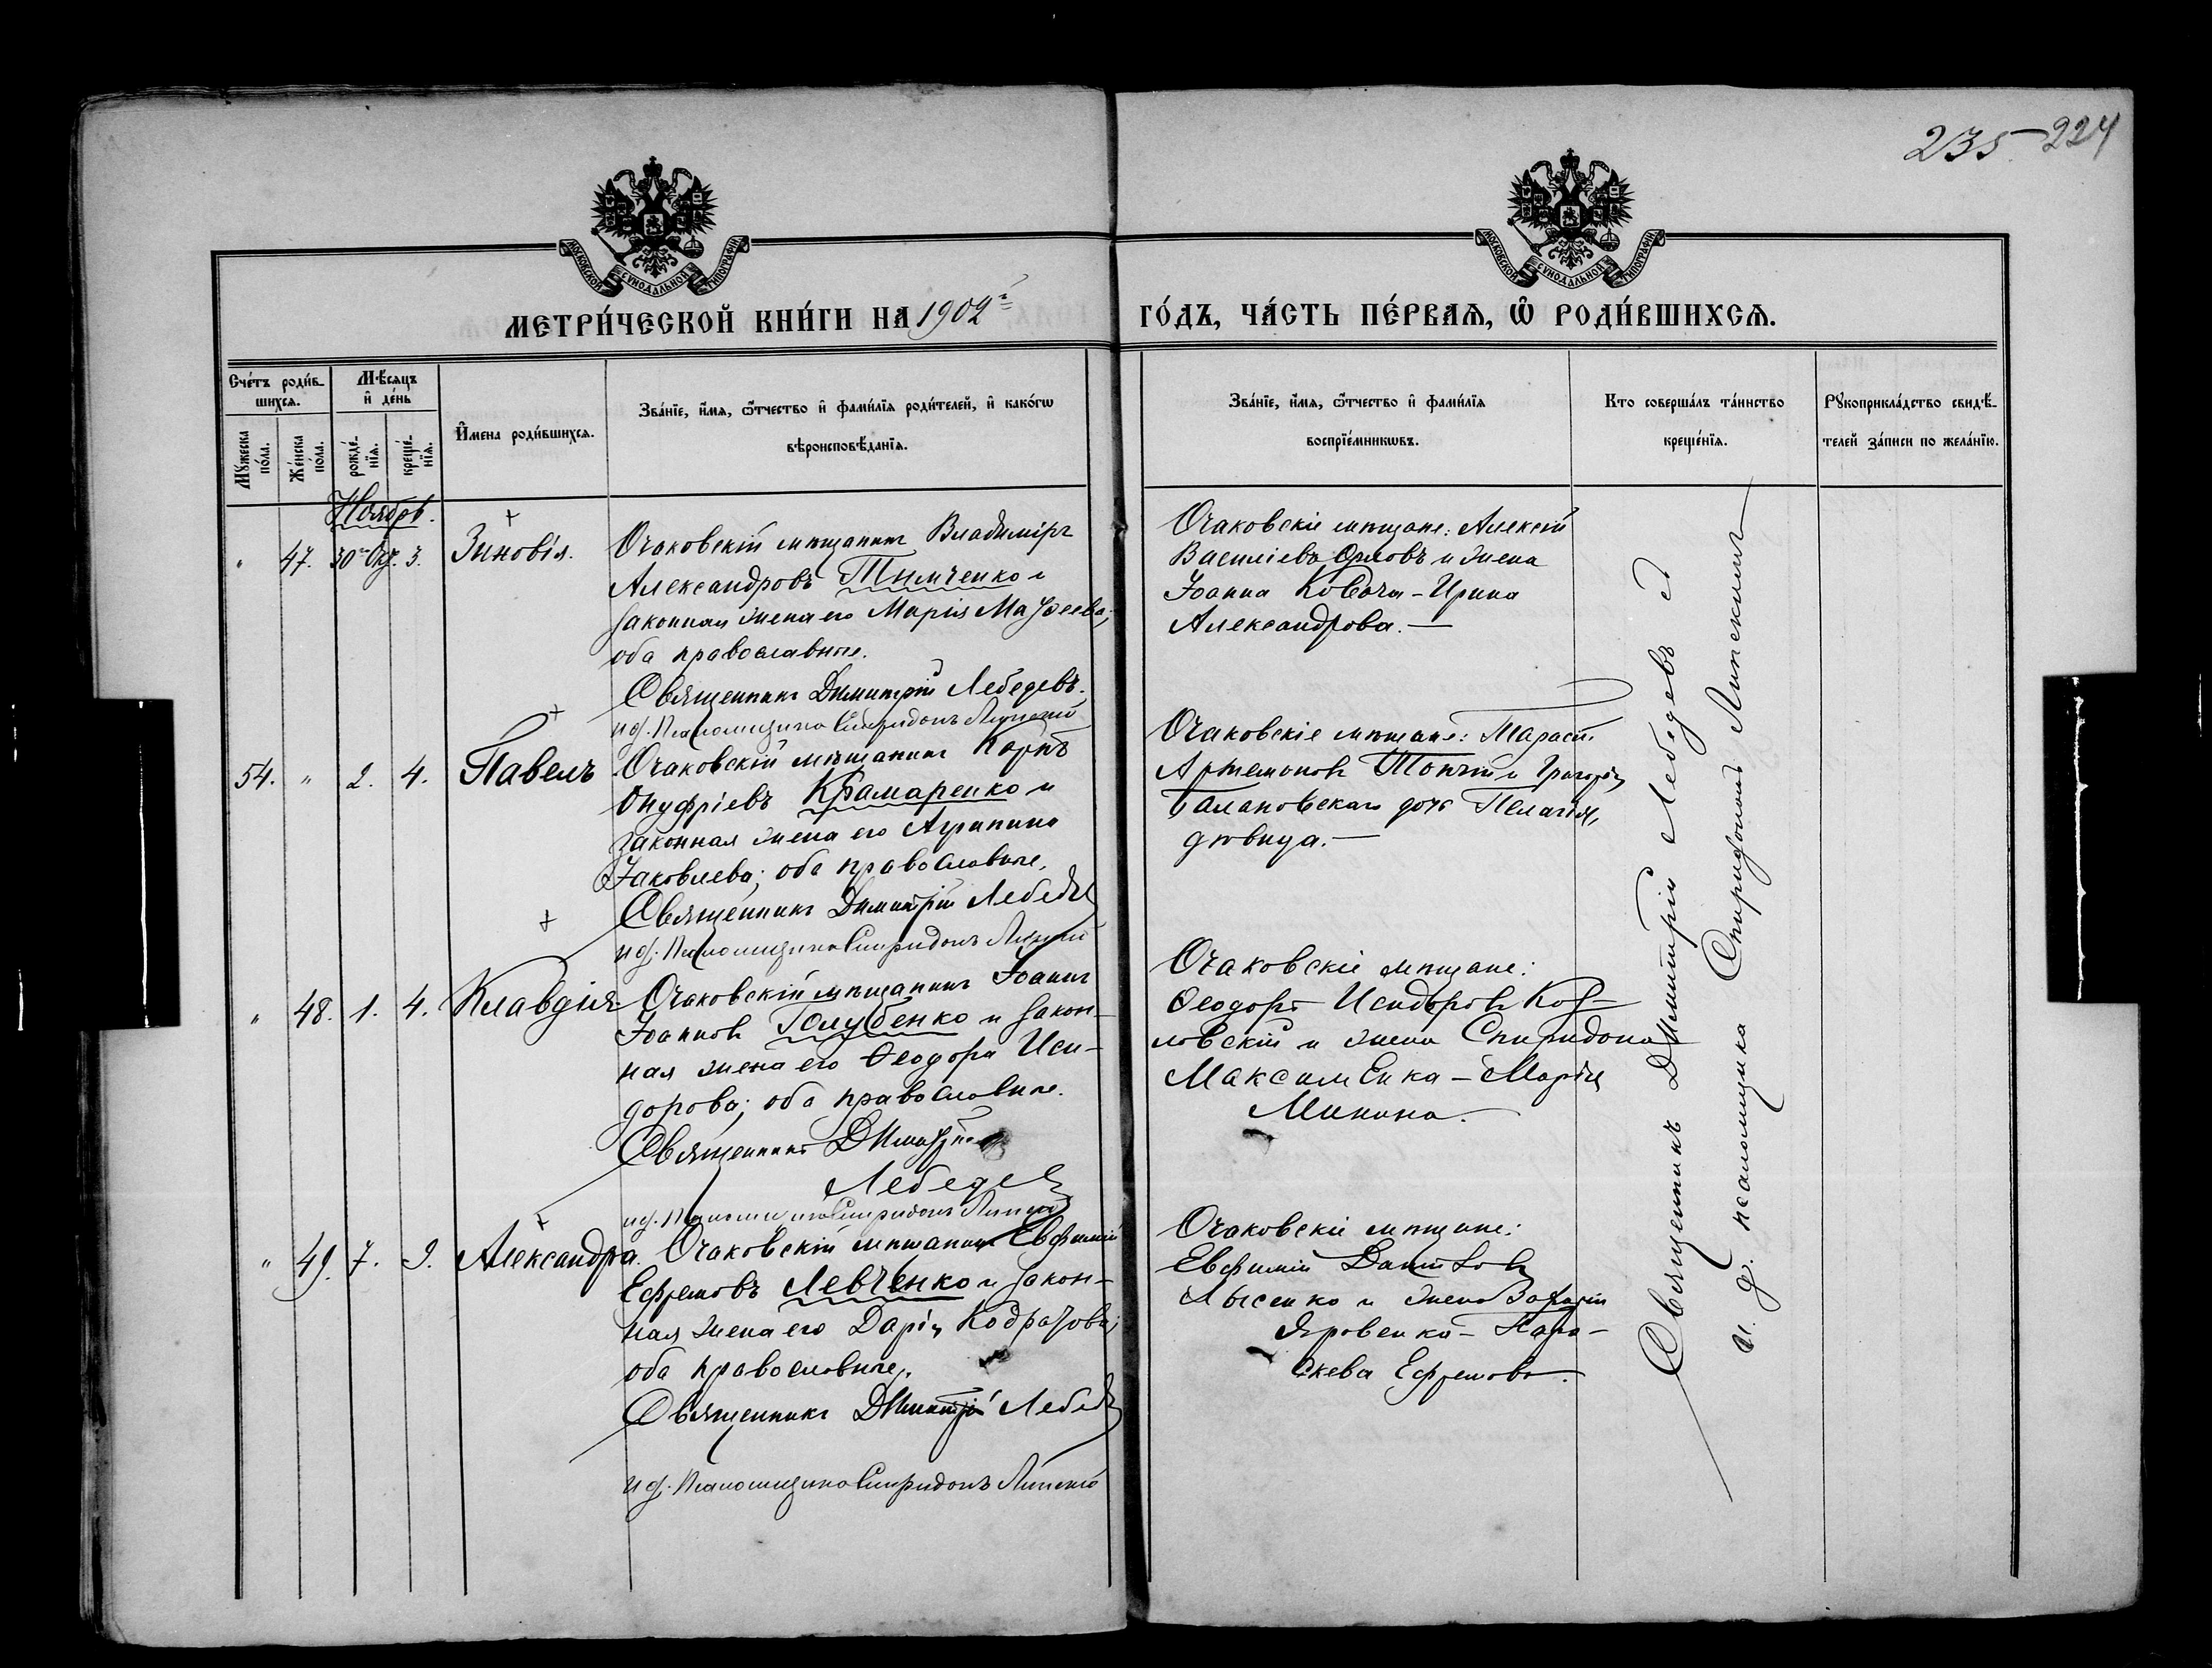 235 224
МОСКОВСКОЙ СѴНОДАЛЬНОЙ ТИПОГРАФІИ
МОСКОВСКОЙ СѴНОДАЛЬНОЙ ТИПОГРАФІИ
МЕТРИ́ЧЕСКОЙ КНИ́ГИ НА 1902й ГО́ДЪ, ЧА́СТЬ ПЕ́РВАѦ, Ѽ РОДИ́ВШИХСѦ.
Сче́тъ роди́в-
шихсѧ.
Мꙋжеска
по́ла.
Же́нска
по́ла.
Мѣ́сѧцъ
и҆ де́нь
рожде́-
нїѧ.
креще́-
нїѧ.
И҆мена роди́вшихсѧ.
Зва́нїе, и҆́мѧ, ѻ҆́тчество и҆ фами́лїѧ роди́телей, и҆ како́гѡ
вѣроисповѣ́данїѧ.
Зва́нїе, и҆́мѧ, ѻ҆́тчество и҆ фами́лїѧ
воспрїе́мникѡвъ.
Кто соверша́лъ та́инство
креще́нїѧ.
Рꙋкоприкла́дство свидѣ́-
телей за́писи по жела́нїю.
Ноябрь.
" 47. 30 Окт. 3. Зиновія.
Очаковскій мѣщанинъ Владиміръ
Александровъ Тымченко и
законная жена его Марія Матѳеева;
оба православные.
Священникъ Димитрій Лебедевъ.
и д. Псаломщика Спиридонъ Липскій
Очаковскіе мѣщане: Алексій
Василіевъ Орловъ и жена
Іоанна Ковача - Ирина
Александрова. —
54. " 2. 4. Павелъ
Очаковскій мѣщанинъ Карпъ
Онуфріевъ Крамаренко и
законная жена его Агрипина
Іаковлева; оба православные.
Священникъ Димитрій Лебедевъ
и д. Псаломщика Спиридонъ Липскій
Очаковскіе мѣщане: Тарасій
Артемоновъ и Григорія
дочь Пелагія,
дѣвица. —
" 48. 1. 4. Клавдія
Очаковскій мѣщанинъ Іоаннъ
Іоанновъ Голубенко и закон-
ная жена его Ѳеодора Иси-
дорова; оба православные.
Священникъ Димитрій
Лебедевъ
и д. Псаломщика Спиридонъ Липскій
Очаковскіе мѣщане:
Ѳеодоръ Исидоровъ Коз-
ловскій и жена Спиридона
Максименка - Марія
Минина.
" 49. 7. 9. Александра.
Очаковскій мѣщанинъ Евфимій
Ефремовъ Левченко и закон-
ная жена его Дарія Кодратова;
оба православные.
Священникъ Димитрій Лебедевъ
и д. Псаломщика Спиридонъ Липскій
Очаковскіе мѣщане:
Евфимій Даніиловъ
Лысенко и жена Захарія
Яровенка - Пара-
скева Ефремова.
Священникъ Димитрій Лебедевъ с
и. д. псаломщика Спиридономъ Липскимъ